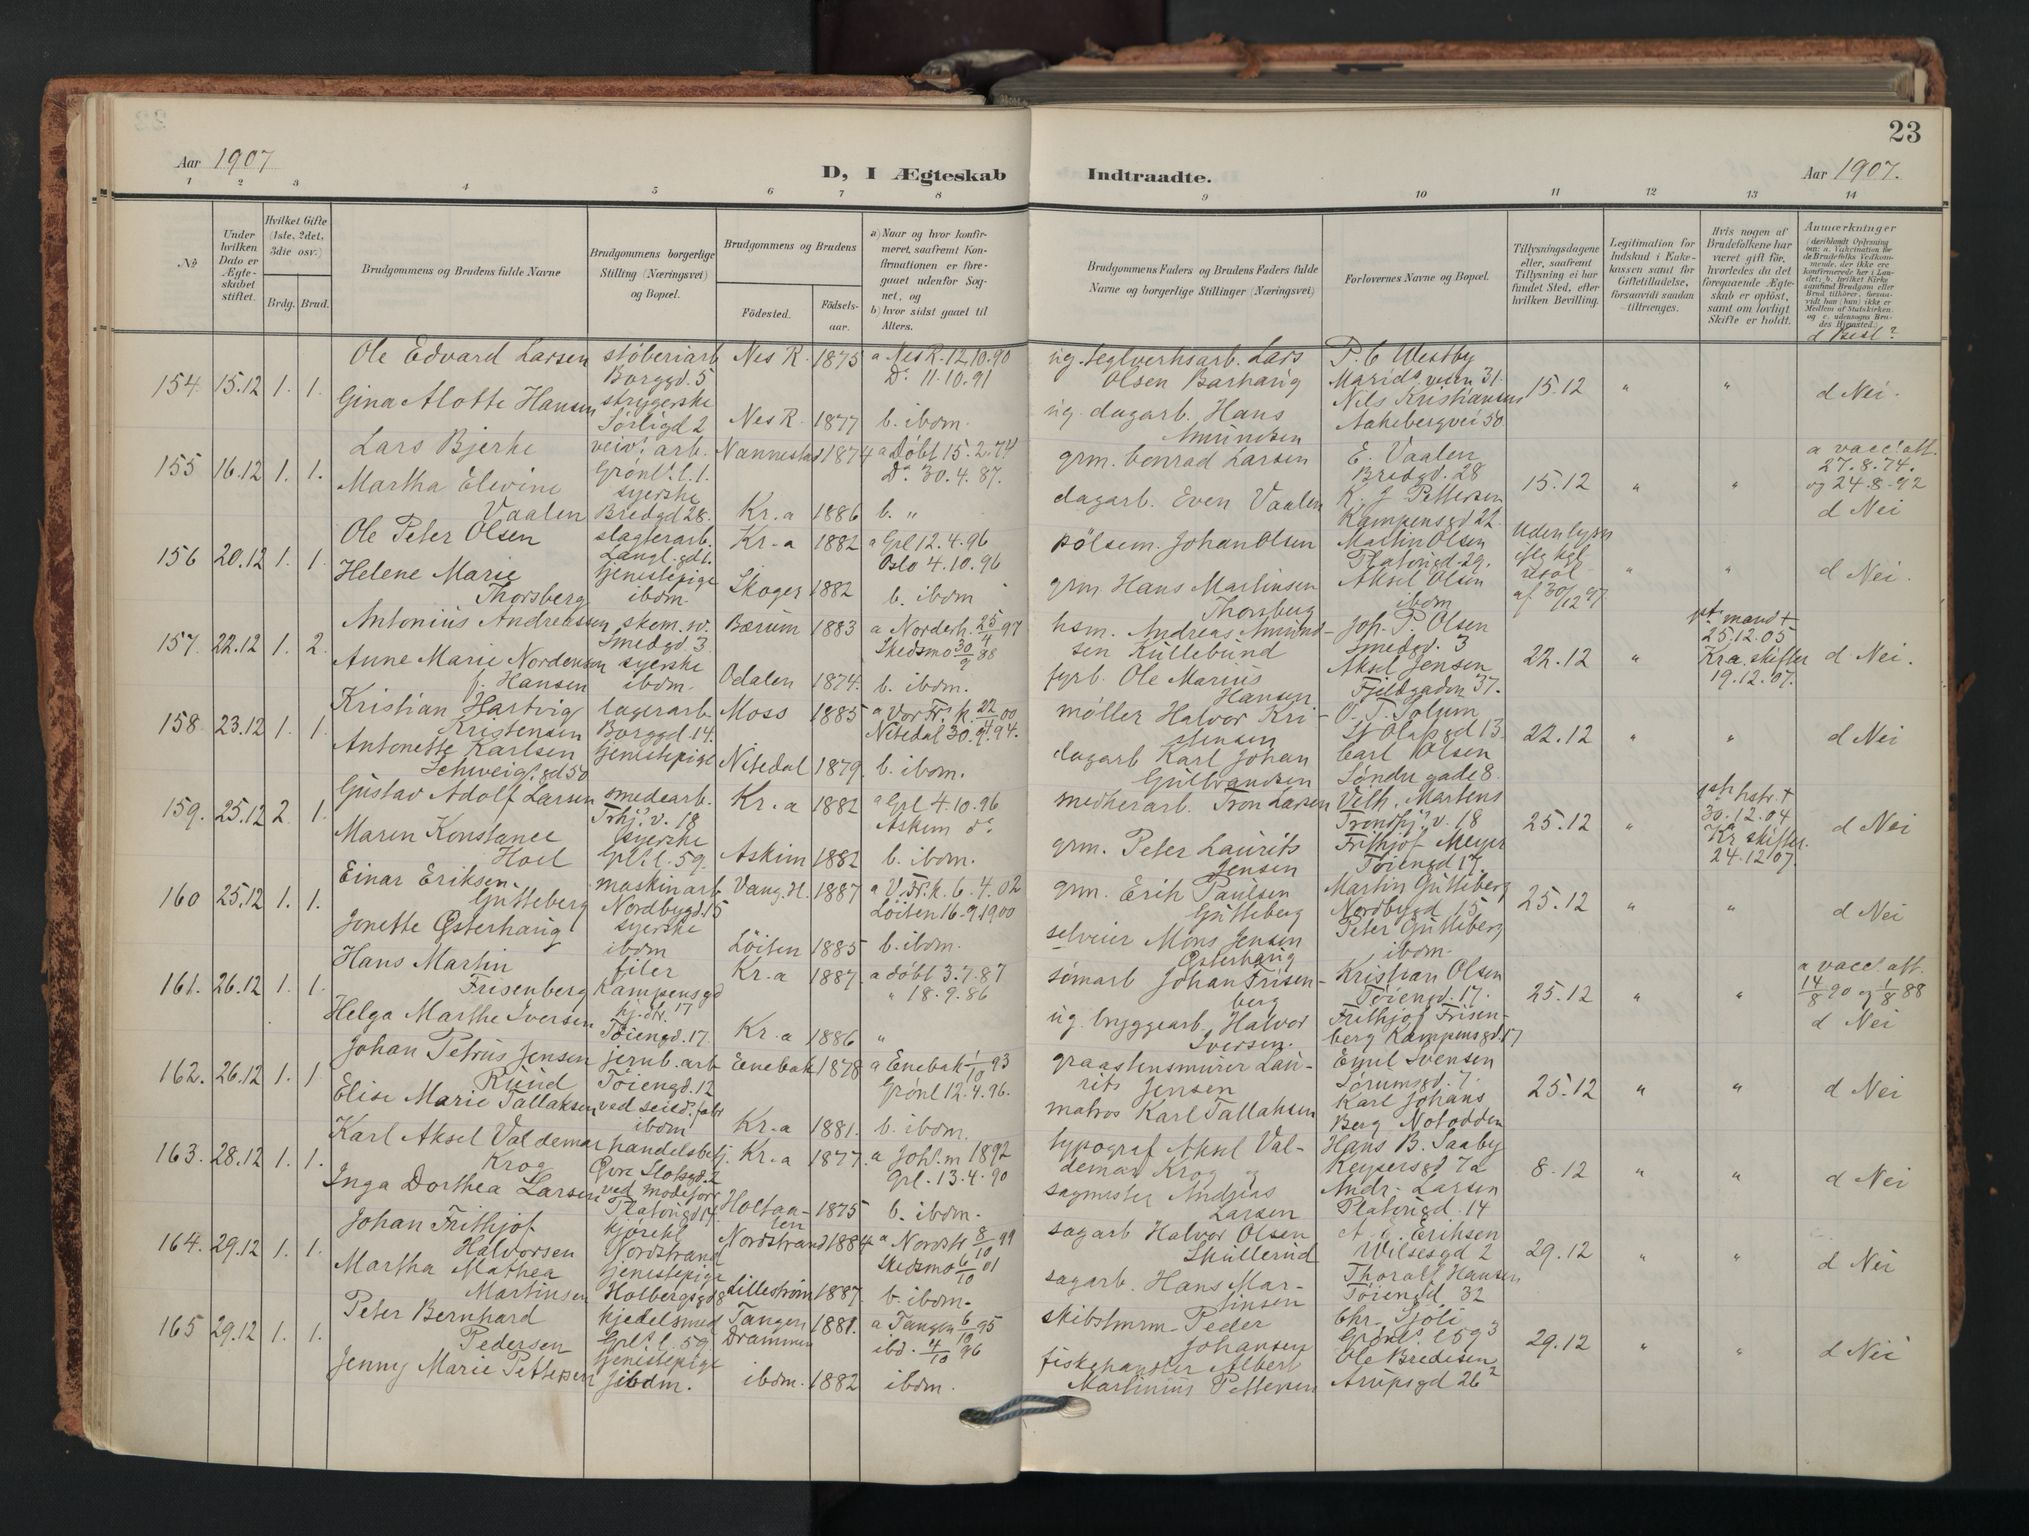 23
Aar 1907
D, I Ægteskab
Indtraadte.
Aar 1907.
1 2 3 4 5 6 7 8 9 10 11 12 13 14
No
Under hvilken Dato er Ægteskabet stiftet.
Hvilket Gifte (1ste, 2det, 3die osv.)
Brdg. Brud.
Brudgommens og Brudens fulde Navne
Brudgommens borgerlige Stilling (Næringsvei) og Bopæl.
Brudgommens og Brudens
Fødested. Fødselsaar.
a) Naar og hvor konfirmeret, saafremt Konfirmationen er foregaaet udenfor Sognet, og
b) hvor sidst gaaet til Alters.
Brudgommens Faders og Brudens Faders fulde Navne og borgerlige Stillinger (Næringsvei)
Forlovernes Navne og Bopæl.
Tillysningsdagene eller, saafremt Tillysning ei har fundet Sted, efter hvilken Bevilling.
Legitimation for Indskud i Enkekassen samt for Giftetilladelse, forsaavidt saadan tiltrænges.
Hvis nogen af Brudefolkene har været gift før, hvorledes da det foregaaende Ægteskab er opløst, samt om lovligt Skifte er holdt.
Anmærkninger
d Besl?
154. 15.12 1. 1. Ole Edvard Larsen støberiarb Borggd. 5 Nes R. 1875 a Nes R. 12.10.90 Do 11.10.91 ug. teglverksarb. Lars Olsen P. C Westby Marids veien 31. 15.12 " " d Nei.
Gina Alotte Hansen strygerske Sørligd 2 Nes R. 1877 b. ibdm. ug. dagarb. Hans Amundsen Nils Kristiansen Aakebergvei 50
155 16.12 1. 1. Lars Bjerke veiv. arb. Grønl. l. 1. Nannestad 1874 a Døbt 15.2.74 Do 30.4.87. grm. Conrad Larsen E. Vaalen Bredgd. 28 15.12 " " a vacc. att. 27.8.74. og 24.8.92 d Nei
Martha Elevine Vaalen syerske Bredgd 28. Kr.a 1886 b. " dagarb. Even Vaalen K. J Pettersen Kampensgd 22.
156 20.12 1. 1. Ole Peter Olsen slagterarb. Langl. gd 1. Kr-a 1882 a Grl 12.4.96 Oslo 4.10.96 pølsem. Johan Olsen Martin Olsen Platougd. 29. Uden lysn iflg kgl resol af 30/12 97 " " d Nei.
Helene Marie Thorsberg tjenestepige ibdm. Skoger 1882 b. ibdm grm Hans Martinsen Thorsberg Aksel Olsen ibdm
157. 22.12 1. 2. Antonius Andreassen skem. sv. Smedgd. 3. Bærum 1883 a Norderh. 25/4 97 Skedsmo 30/9 88 hsm. Andreas Amundsen Kullebund Joh. P. Olsen Smedgd. 3 22.12 " 1st mand + 25.12.05 Kra. skifter 19.12.07. d Nei.
Anne Marie Nordensen f. Hansen syerske ibdm. Odalen 1874. b. ibdm. fyrb. Ole Marius Hansen Aksel Jensen Fjeldgaden 37.
158. 23.12 1. 1. Kristian Hartvig Kristensen lagerarb. Borggd. 14. Moss 1885 a Vor Fr. k. 22/4 00 Nitedal 30.9.94. møller Halvor Kristensen O. T. Solum St Olafsgd 13. 22.12 " " d Nei
Antonette Karlsen Schweig. gd 50 tjenestepige Nitedal 1879. b. ibdm. dagarb Karl Johan Gulbrandsen Carl Olsen Søndregade 8.
159. 25.12 2. 1. Gustav Adolf Larsen smedearb. Trhj. v. 18 Kr.a 1882 a Grl 4.10.96 Askim do medkerarb. Tron Larsen Vilh. Martens Trondhj. v. 18 25.12 " 1ste hstr. + 30.12.04 Kr skifter. 24.12 07. d Nei
Maren Konstance Hoel syerske Grl. l. 59. Askim 1882 b. ibdm. grm. Peter Laurits Jensen Frithjof Meyer Tøiengd 17.
160 25.12 1. 1. Einar Eriksen Gutteberg maskinarb Nordbygd. 15 Vang. H. 1887 a V. Fr. k. 6.4.02 Løiten 16.9.1900 grm. Erik Paulsen Gutteberg Martin Gutteberg Nordbygd 15 25.12 " " d Nei
Jonette Østerhaug syerske ibdm Løiten 1885 b. ibdm. selveier Mons Jensen Østerhaug Peter Gutteberg ibdm.
161. 26.12 1. 1. Hans Martin Frisenberg filer Kampensgd 17 Kr.a 1887. a døbt 3.7.87 " 18.9.86 sømarb Johan Frisenberg Kristian Olsen Tøiengd. 17. 25.12 " " a vacc. att. 14/8 90 og 1/8 88 d Nei
Helga Marthe Iversen Tøiengd. 17. Kr.a 1886 " ug. bryggearb. Halvor Iversen. Frithjof Frisenberg Kampensgd. 17
162. 26.12 1. 1 Johan Petrus Jensen Rund jernb. arb Tøiengd. 12 Enebak 1878 a Enebak 1/10 93 Grønl 12.4.96. graastensmurer Laurits Jensen Emil Svensen Sørumsgd. 7. 25.12 " " d Nei
Elise Marie Tallaksen ved seield. fabr ibdm Kr.a 1881. b. ibdm. matros Karl Tallaksen Karl Johans Berg Notodden
163. 28.12 1. 1. Karl Aksel Valdemar Krog handelsbetj. Øvre Slotsgd. 2 Kr.a 1877. a Joh. m 1892 Grl. 13.4.90 typograf Aksel Valdemar Krog og Hans B. Saaby Keysersgd 7a 8.12 " " d Nei
Inga Dorthea Larsen ved modeforr Platougd 14. Holtaalen 1875 b. ibdm. sagmester Andreas Larsen Andr. Larsen Platougd. 14
164. 29.12 1. 1. Johan Frithjof Halvorsen kjørek. Nordstrand Nordstrand 1884 a. Nordstr 8/10 99 Skedsmo 6/10 01 sagarb Halvor Olsen Skullerud A. G. Eriksen Wilsesgd 2 29.12 " " d Nei
Martha Mathea Martinsen tjenestepige Holbergsgd 8 Lillestrøm 1887. b. ibdm. sagarb. Hans Martinsen Thoralf Hansen Tøiengd 32
165 29.12 1. 1. Peter Bernhard Pedersen kjedelsmed Grl. l. 59. Tangen Drammen 1881. a Tangen 6/10 95 ibd. 4/10 96 skibstmrm Peder Johansen Chr. Sjøli Grønl. l 59 3 29.12 " " d Nei
Jenny Marie Pettersen tjenestepige ibdm. ibdm. 1882 ibdm. fiskehandler Albert Martinius Pettersen Ole Bredesen Arupsgd 26 2